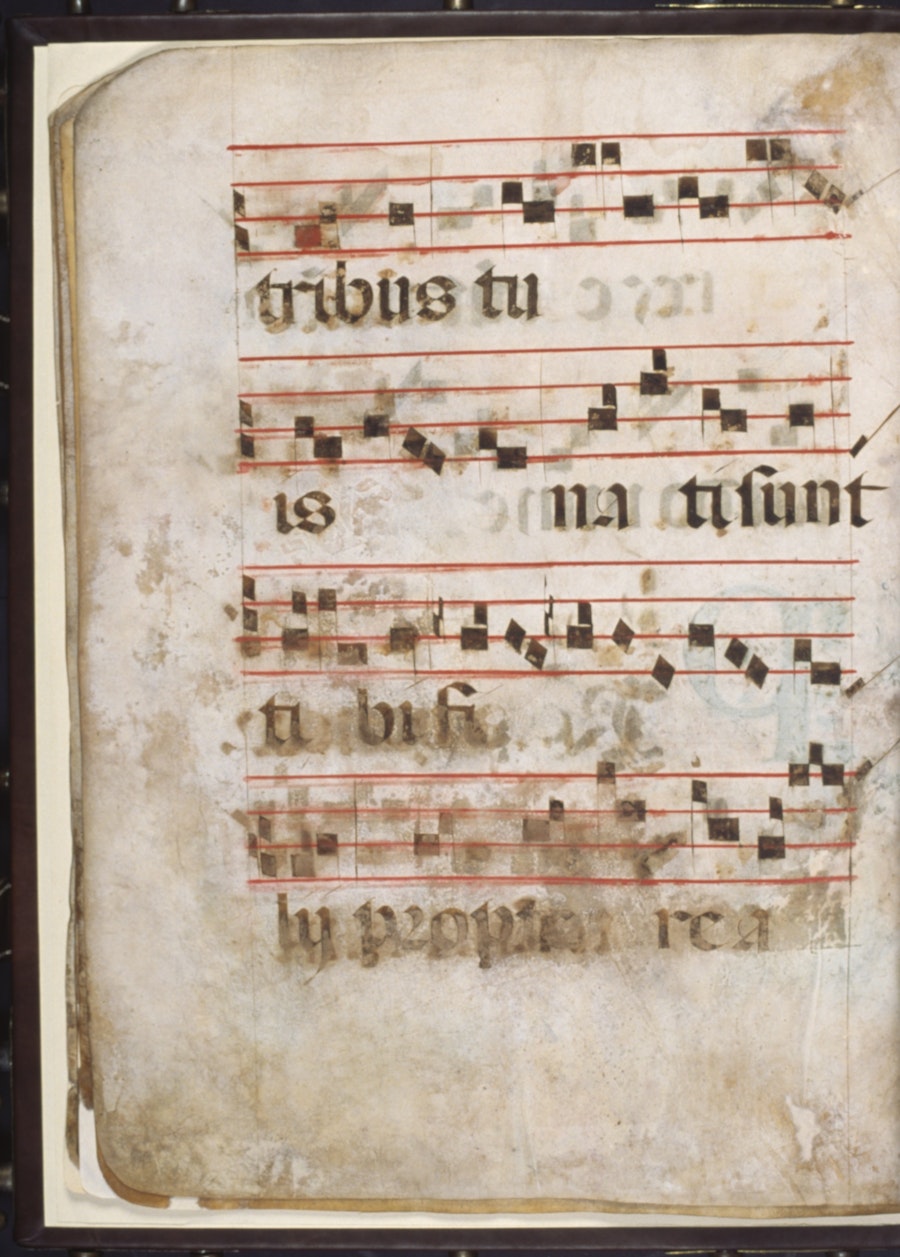 tribus tu
is na ti sunt
ti bi fi
ly propterea